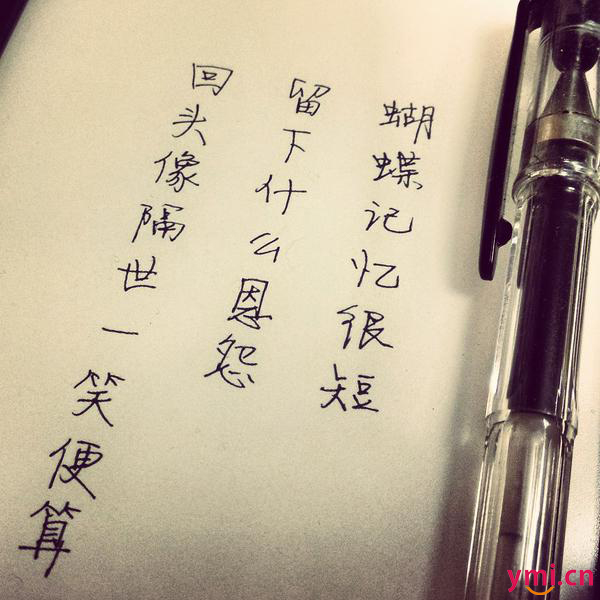 蝴蝶记忆很短
留下什么恩怨
回头像隔世一笑便算
ymi.cn